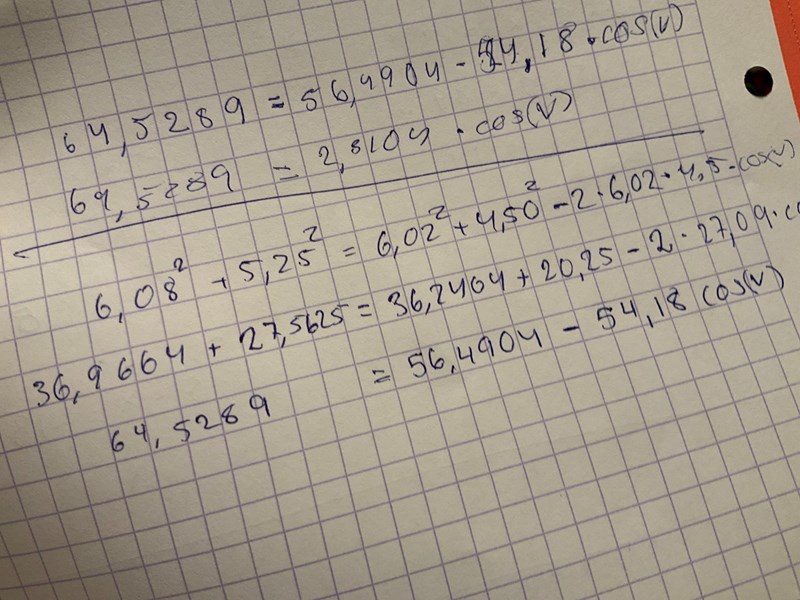 64,5289 = 56,4904 - 54,18 · cos(v)
64,5289 = 2,3104 · cos(v)
6,08² + 5,25² = 6,02² + 4,50² - 2 · 6,02 · 4,5 · cos(v)
36,9664 + 27,5625 = 36,2404 + 20,25 - 2 · 27,09 · co
64,5289 = 56,4904 - 54,18 cos(v)